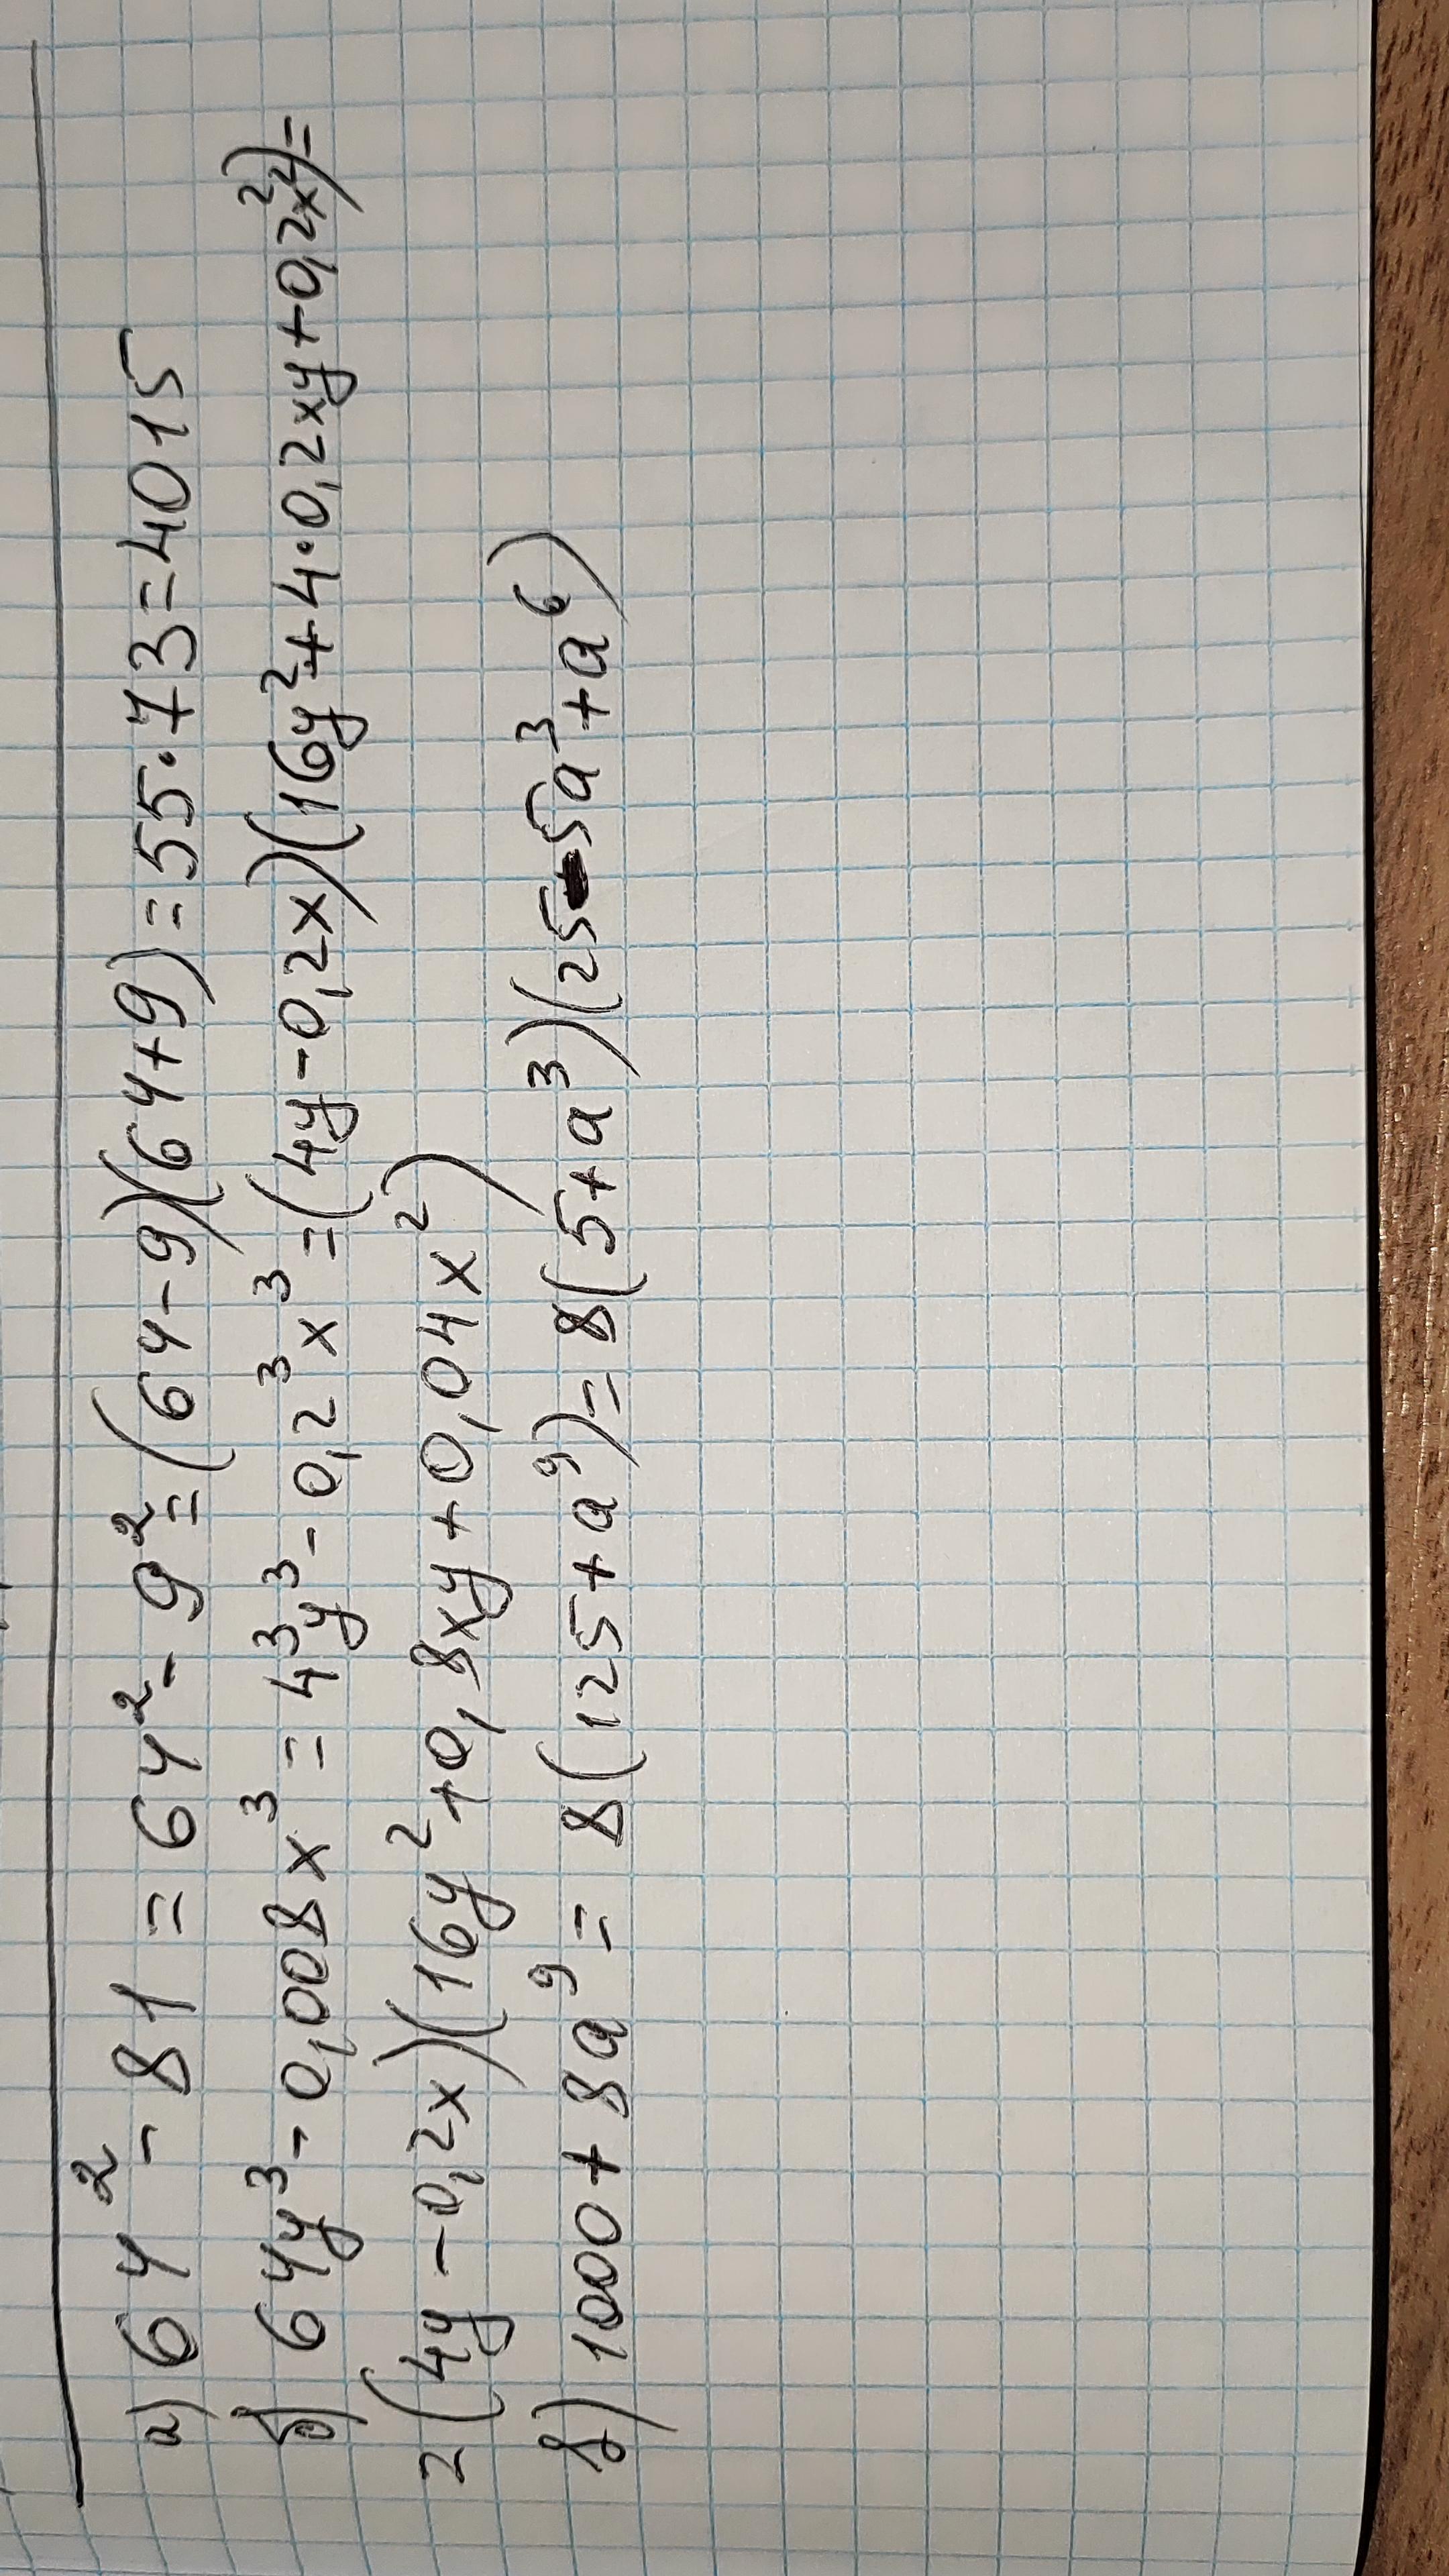 а) 64² - 81 = 64² - 9² = (64-9)(64+9) = 55·73 = 4015
б) 64y³ - 0,008x³ = 4³y³ - 0,2³x³ = (4y - 0,2x)(16y² + 4·0,2xy + 0,2²x²) =
2(4y - 0,2x)(16y² + 0,8xy + 0,04x²)
в) 1000 + 8a⁹ = 8(125 + a⁹) = 8(5 + a³)(25 - 5a³ + a⁶)